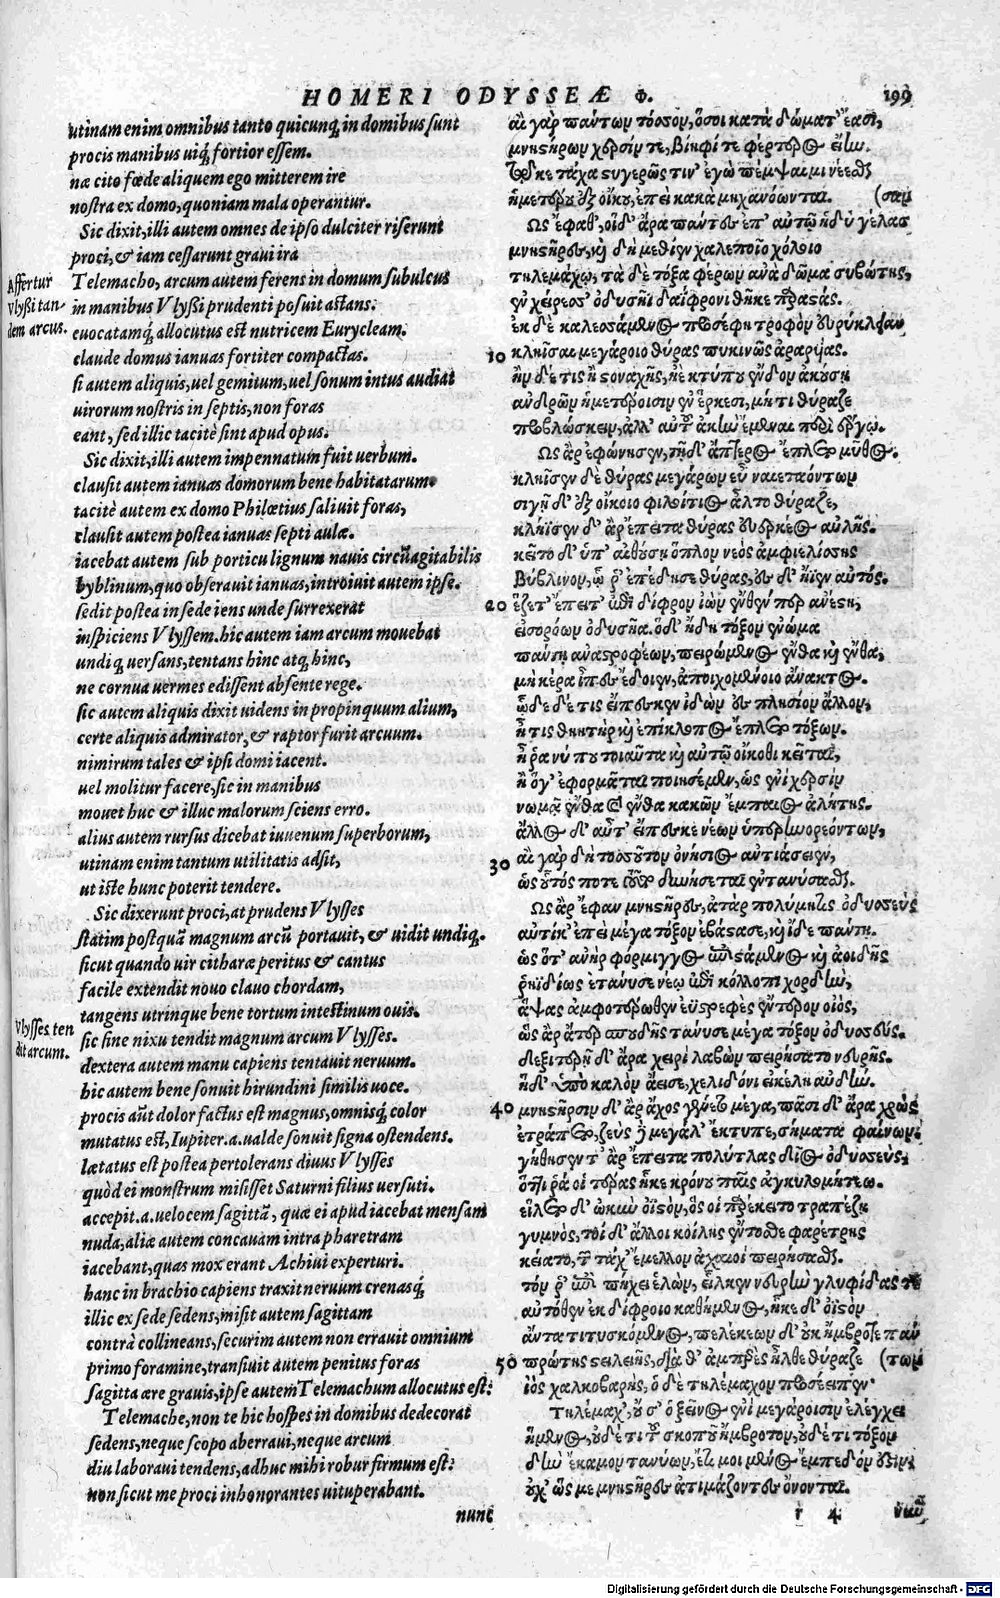 HOMERI ODYSSEÆ Φ.
199
utinam enim omnibus tanto quicunq; in domibus sunt
procis manibus uiq; fortior essem.
næ cito fœde aliquem ego mitterem ire
nostra ex domo, quoniam mala operantur.
Sic dixit, illi autem omnes de ipso dulciter riserunt
proci, & iam cessarunt graui ira
Affertur
Vlyßi tan-
dem arcus.
Telemacho, arcum autem ferens in domum subulcus
in manibus Vlyßi prudenti posuit astans.
euocatamq; allocutus est nutricem Eurycleam.
claude domus ianuas fortiter compactas.
si autem aliquis, uel gemitum, uel sonum intus audiat
uirorum nostris in septis, non foras
eant, sed illic tacitè sint apud opus.
Sic dixit, illi autem impennatum fuit uerbum.
clausit autem ianuas domorum bene habitatarum
tacitè autem ex domo Philœtius saliuit foras,
clausit autem postea ianuas septi aulæ.
iacebat autem sub porticu lignum nauis circūagitabilis
byblinum, quo obserauit ianuas, introiuit autem ipse.
sedit postea in sede iens unde surrexerat
inspiciens Vlyssem. hic autem iam arcum mouebat
undiq; uersans, tentans hinc atq; hinc,
ne cornua uermes edissent absente rege.
sic autem aliquis dixit uidens in propinquum alium,
certe aliquis admirator, & raptor furit arcuum.
nimirum tales & ipsi domi iacent.
uel molitur facere, sic in manibus
mouet huc & illuc malorum sciens erro.
alius autem rursus dicebat iuuenum superborum,
utinam enim tantum utilitatis adsit,
ut iste hunc poterit tendere.
Sic dixerunt proci, at prudens Vlysses
statim postquā magnum arcū portauit, & uidit undiq;.
sicut quando uir citharæ peritus & cantus
facile extendit nouo clauo chordam,
tangens utrinque bene tortum intestinum ouis.
Vlysses ten
dit arcum.
sic sine nixu tendit magnum arcum Vlysses.
dextera autem manu capiens tentauit neruum.
hic autem bene sonuit hirundini similis uoce.
procis aūt dolor factus est magnus, omnisq; color
mutatus est, Iupiter .a. ualde sonuit signa ostendens.
lætatus est postea pertolerans diuus Vlysses
quòd ei monstrum misisset Saturni filius uersuti.
accepit .a. uelocem sagittā, quæ ei apud iacebat mensam
nuda, aliæ autem concauam intra pharetram
iacebant, quas mox erant Achiui experturi.
hanc in brachio capiens traxit neruum crenasq;
illic ex sede sedens, misit autem sagittam
contrà collineans, securim autem non errauit omnium
primo foramine, transiuit autem penitus foras
sagitta ære grauis, ipse autem Telemachum allocutus est:
Telemache, non te hic hospes in domibus dedecorat
sedens, neque scopo aberraui, neque arcum
diu laboraui tendens, adhuc mihi robur firmum est:
non sicut me proci inhonorantes uituperabant.
nunc
αἲ γὰρ πάντων τόσον, ὅσοι κατὰ δώματ' ἔασι,
μνηστήρων χερσίν τε, βίηφί τε φέρτερος εἴην.
τῷ κε τάχα στυγερῶς τιν' ἐγὼ πέμψαιμι νέεσθαι
ἡμετέρου ἐξ οἴκου, ἐπεὶ κακὰ μηχανόωνται. (σαν
Ὣς ἔφαθ', οἱ δ' ἄρα πάντες ἐπ' αὐτῷ ἡδὺ γέλασ
μνηστῆρες, καὶ δὴ μέθιεν χαλεποῖο χόλοιο
τηλεμάχῳ, τὰ δὲ τόξα φέρων ἀνὰ δῶμα συβώτης,
ἐν χείρεσσ' ὀδυσῆι δαΐφρονι θῆκε παραστάς.
ἐκ δὲ καλεσσάμενος προσέφη τροφὸν εὐρύκλειαν
10 κληῖσαι μεγάροιο θύρας πυκινῶς ἀραρυίας.
ἢν δέ τις ἢ στοναχῆς, ἠὲ κτύπου ἔνδον ἀκούσῃ
ἀνδρῶν ἡμετέροισιν ἐν ἕρκεσι, μήτι θύραζε
προβλώσκειν, ἀλλ' αὐτοῦ ἀκὴν ἔμεναι παρὰ ἔργῳ.
Ὣς ἂρ ἐφώνησεν, τῇ δ' ἄπτερος ἔπλετο μῦθος.
κλήϊσεν δὲ θύρας μεγάρων εὖ ναιεταόντων
σιγῇ δ' ἐξ οἴκοιο φιλοίτιος ἆλτο θύραζε,
κλήϊσεν δ' ἂρ ἔπειτα θύρας εὐερκέος αὐλῆς.
κεῖτο δ' ὑπ' αἰθούσῃ ὅπλον νεὸς ἀμφιελίσσης
βύβλινον, ᾧ ῥ' ἐπέδησε θύρας, ἐς δ' ἤϊεν αὐτός.
20 ἕζετ' ἔπειτ' ἐπὶ δίφρον ἰὼν ἔνθεν περ ἀνέστη,
εἰσορόων ὀδυσῆα. ὁ δ' ἤδη τόξον ἐνώμα
πάντη ἀναστρωφέων, πειρώμενος ἔνθα καὶ ἔνθα,
μὴ κέρα ἶπες ἔδοιεν, ἀποιχομένοιο ἄνακτος.
ὧδε δέ τις εἴπεσκεν ἰδὼν ἐς πλησίον ἄλλον,
ἦ τις θηητὴρ καὶ ἐπίκλοπος ἔπλετο τόξων.
ἦ ῥά νύ που τοιαῦτα καὶ αὐτῷ οἴκοθι κεῖται,
ἢ ὅγ' ἐφορμᾶται ποιησέμεν, ὡς ἐνὶ χερσὶν
νωμᾷ ἔνθα καὶ ἔνθα κακῶν ἔμπαιος ἀλήτης.
ἄλλος δ' αὖτ' εἴπεσκε νέων ὑπερηνορεόντων,
30 αἲ γὰρ δὴ τοσσοῦτον ὀνήσιος ἀντιάσειεν,
ὡς οὗτός ποτε τοῦτο δυνήσεται ἐντανύσασθαι.
Ὣς ἂρ ἔφαν μνηστῆρες, ἀτὰρ πολύμητις ὀδυσσεὺς
αὐτίκ' ἐπεὶ μέγα τόξον ἐβάστασε, καὶ ἴδε πάντη.
ὡς ὅτ' ἀνὴρ φόρμιγγος ἐπιστάμενος καὶ ἀοιδῆς
ῥηϊδίως ἐτάνυσε νέῳ ἐπὶ κόλλοπι χορδὴν,
ἅψας ἀμφοτέρωθεν ἐϋστρεφὲς ἔντερον οἰός,
ὣς ἂρ ἄτερ σπουδῆς τάνυσε μέγα τόξον ὀδυσσεύς.
δεξιτερῇ δ' ἄρα χειρὶ λαβὼν πειρήσατο νευρῆς.
ἡ δ' ὑπὸ καλὸν ἄεισε, χελιδόνι εἰκέλη αὐδὴν.
40 μνηστῆρσιν δ' ἂρ ἄχος γένετο μέγα, πᾶσι δ' ἄρα χρὼς
ἐτράπετο, ζεὺς δὲ μεγάλ' ἔκτυπε, σήματα φαίνων.
γήθησέν τ' ἂρ ἔπειτα πολύτλας δῖος ὀδυσσεὺς,
ὅττι ῥά οἱ τέρας ἧκε κρόνου παῖς ἀγκυλομήτεω.
εἵλετο δ' ὠκὺν ὀϊστὸν, ὅς οἱ παρέκειτο τραπέζῃ
γυμνὸς, τοὶ δ' ἄλλοι κοίλης ἔντοσθε φαρέτρης
κείατο, τῶν τάχ' ἔμελλον ἀχαιοὶ πειρήσασθαι.
τόν ῥ' ἐπὶ πήχει ἑλὼν, εἷλκεν νευρὴν γλυφίδας τε
αὐτόθεν ἐκ δίφροιο καθήμενος, ἧκε δ' ὀϊστὸν
ἄντα τιτυσκόμενος, πελέκεων δ' οὐκ ἤμβροτε πάν
50 πρώτης στειλειῆς, διὰ δ' ἀμπερὲς ἦλθε θύραζε (των
ἰὸς χαλκοβαρής, ὁ δὲ τηλέμαχον προσέειπεν·
Τηλέμαχ', οὔ σ' ὁ ξεῖνος ἐνὶ μεγάροισιν ἐλέγχει
ἥμενος, οὐδέ τι τοῦ σκοποῦ ἤμβροτον, οὐδέ τι τόξον
δὴν ἔκαμον τανύων, ἔτι μοι μένος ἔμπεδόν ἐστιν.
οὐχ' ὥς με μνηστῆρες ἀτιμάζοντες ὄνονται.
r 4
νῦν
Digitalisierung gefördert durch die Deutsche Forschungsgemeinschaft - DFG